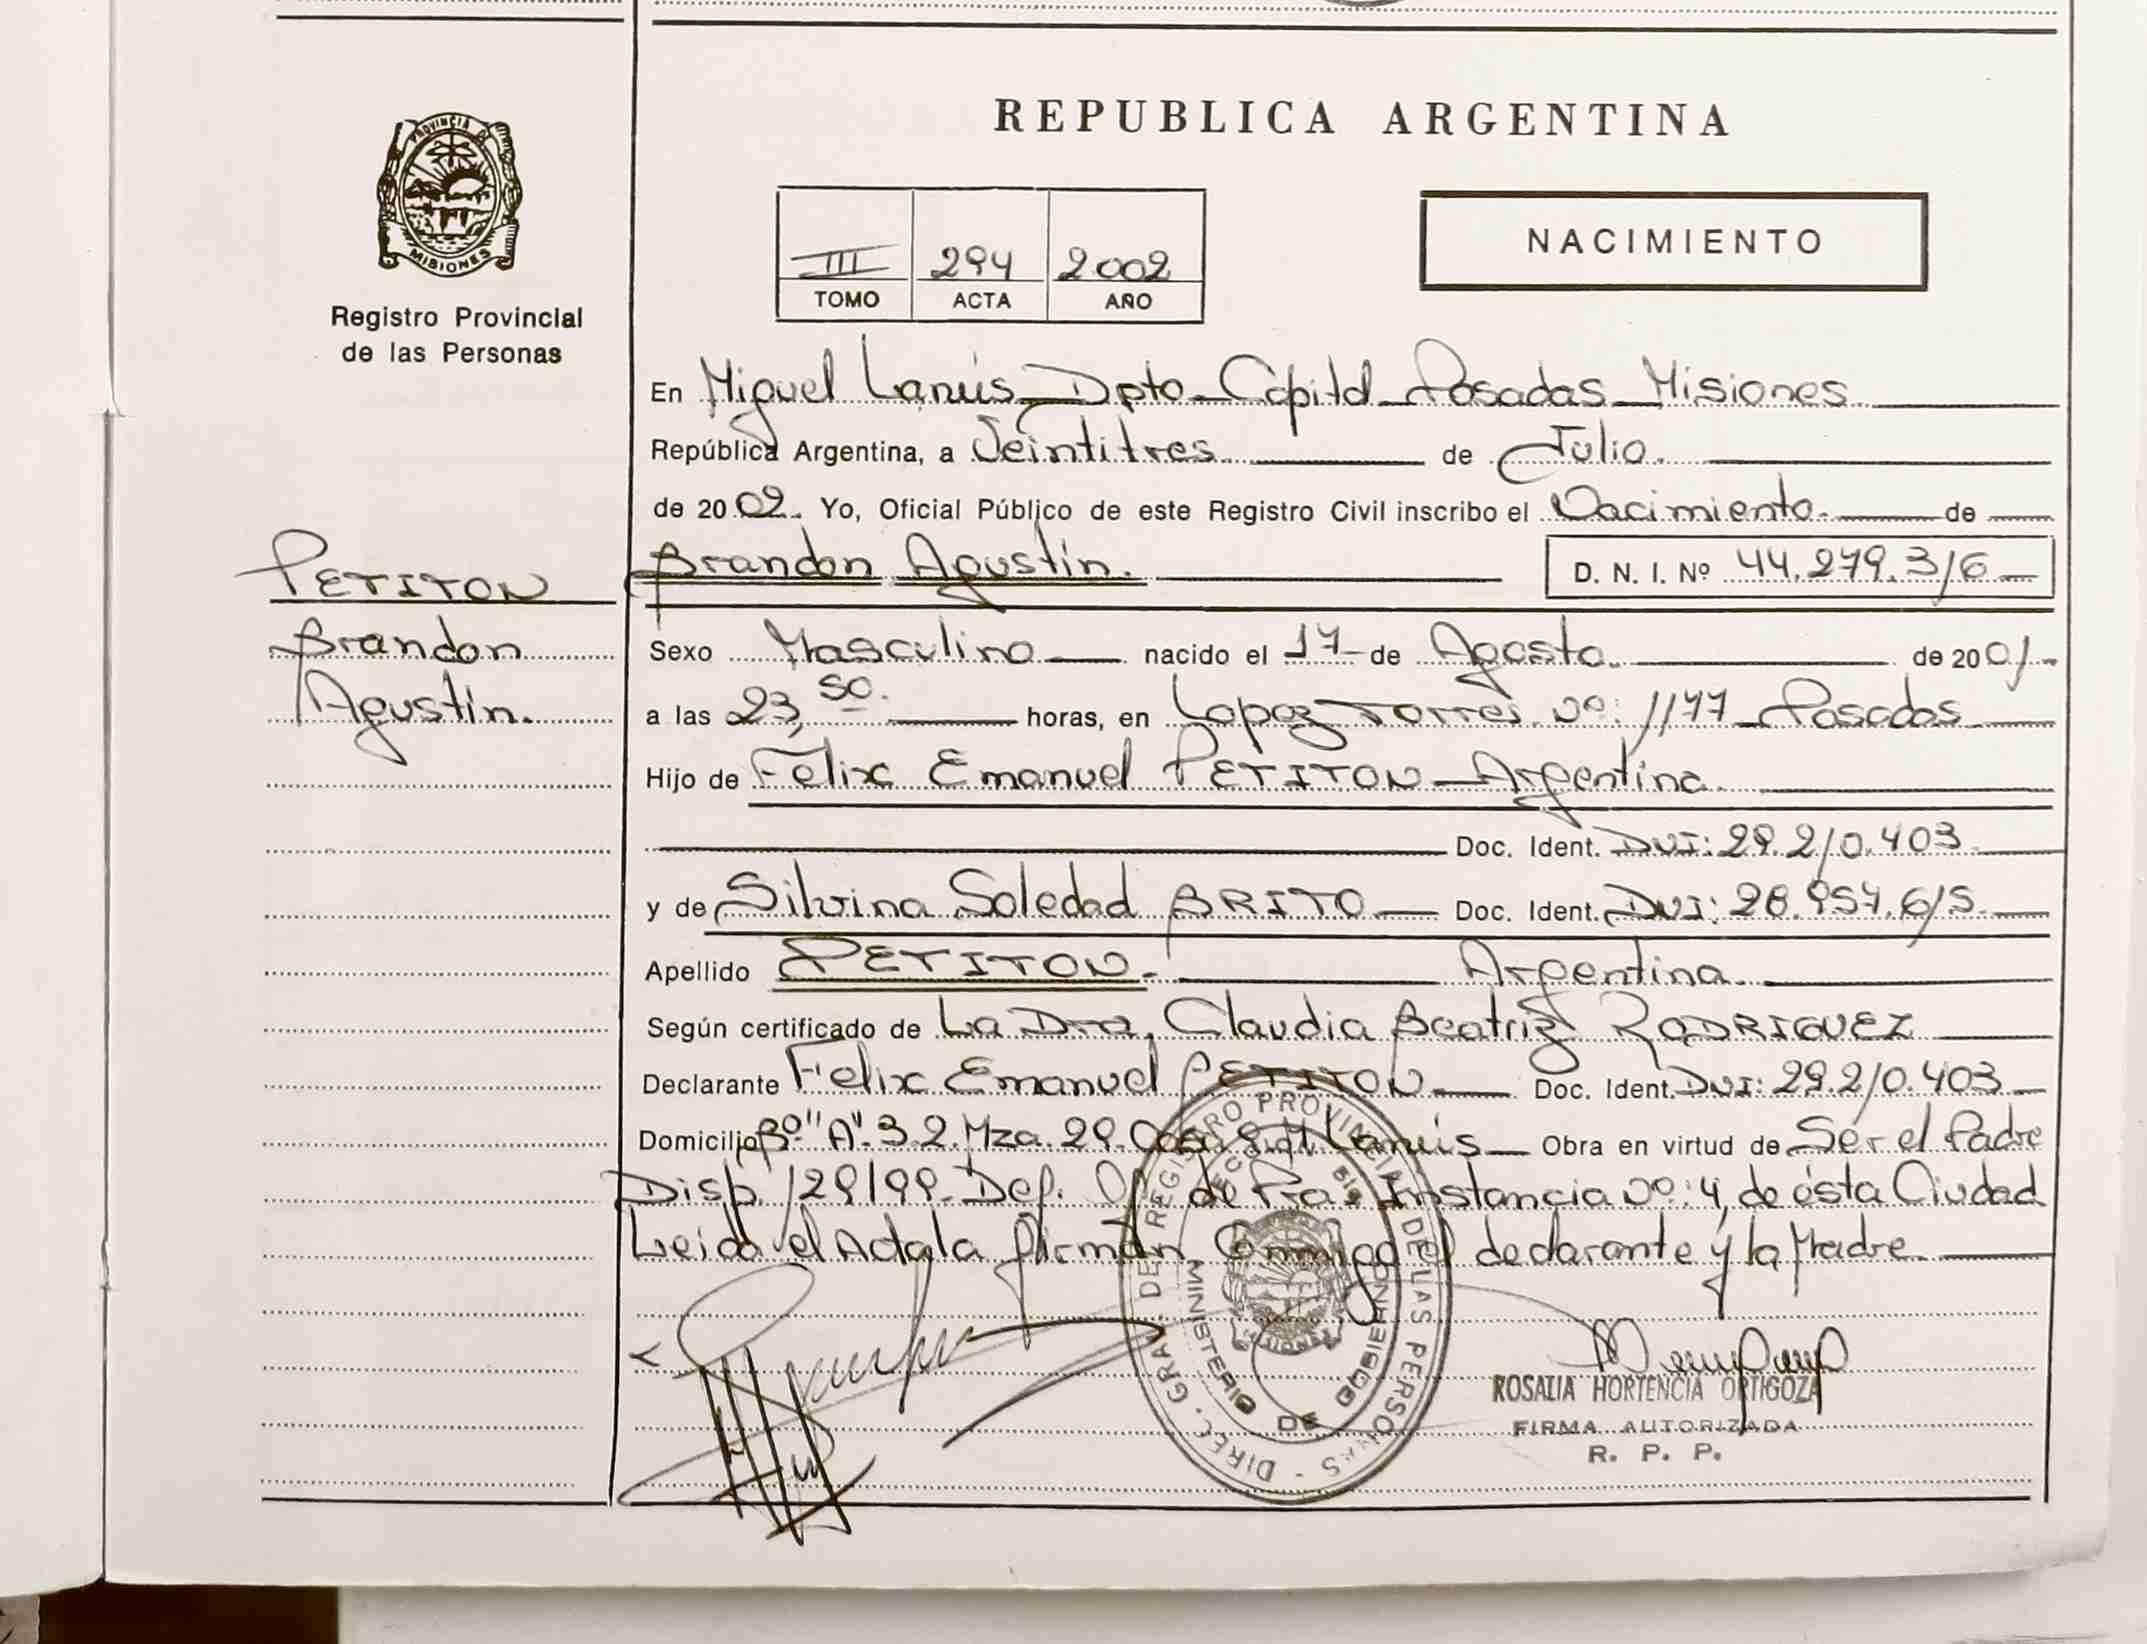 REPUBLICA ARGENTINA
PROVINCIA DE
MISIONES
Registro Provincial
de las Personas
III 294 2002
TOMO ACTA AÑO
NACIMIENTO
En Miguel Lanús Dpto Capital Posadas Misiones
República Argentina, a Veintitres de Julio
de 2002. Yo, Oficial Público de este Registro Civil inscribo el Nacimiento de
PETITON
Brandon Agustín. D. N. I. Nº 44.279.316
Brandon
Agustín.
Sexo Masculino nacido el 17 de Agosto de 2001
a las 23,50. horas, en Lopez Torres Nº: 1177 Posadas
Hijo de Felix Emanuel PETITON Argentina
Doc. Ident. DNI: 29.210.403
y de Silvina Soledad BRITO Doc. Ident. DNI: 28.957.615
Apellido PETITON. Argentina
Según certificado de La Dra. Claudia Beatriz RODRIGUEZ
Declarante Felix Emanuel PETITON Doc. Ident. DNI: 29.210.403
Domicilio Bº "A" 3.2. Mza 29. Casa 8. M. Lanús Obra en virtud de Ser el Padre
Disp. 129/99. Def. Of. de Pra. Instancia Nº: 4, de ésta Ciudad
Leida el Acta la firmán Conmigo el declarante y la Madre
DIREC. GRAL. DE REGISTRO PROVINCIAL DE LAS PERSONAS
MINISTERIO DE GOBIERNO
ROSALIA HORTENCIA ORTIGOZA
FIRMA AUTORIZADA
R. P. P.